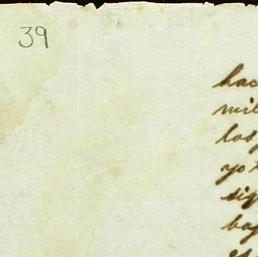 39
hac
mil
los
yo
sig
baj